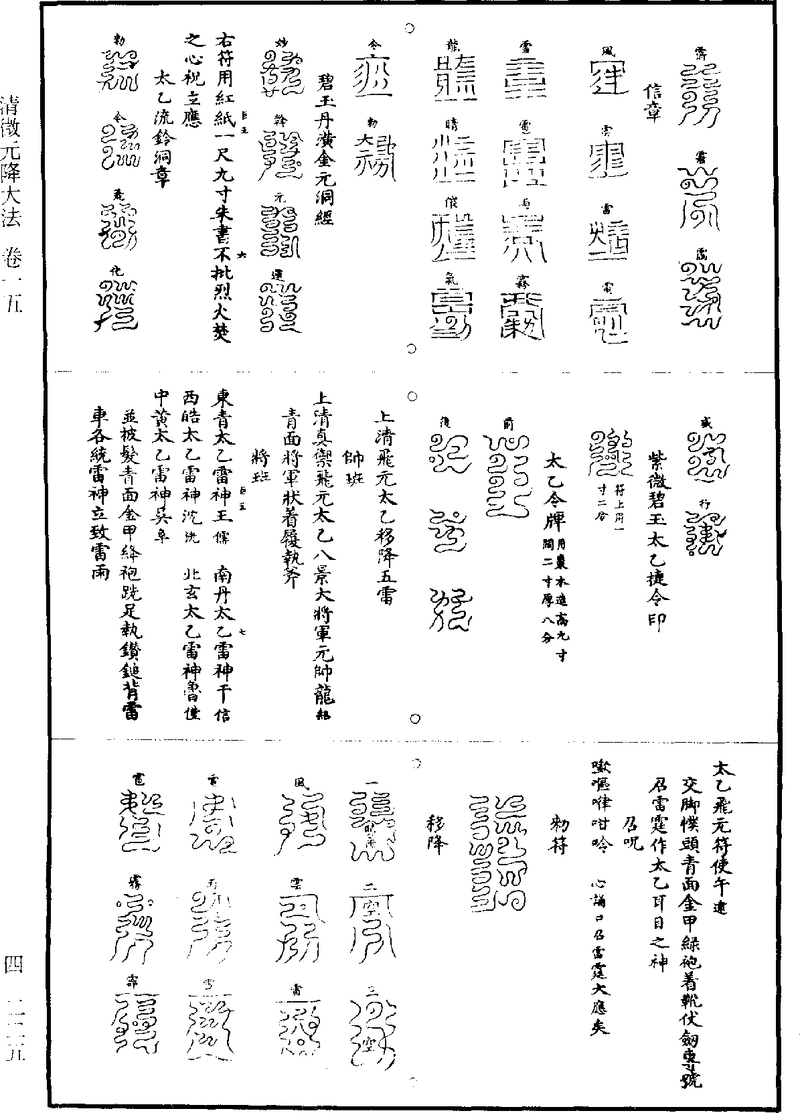 清微元降大法 卷一五
四 二二五
霱
君
厲
信章
風
雲
雷
電
雪
雹
雨
霧
龍
晴
催
氣
令
勅
碧玉丹潢金元洞經
妙
幹
元
運
右符用紅紙一尺九寸朱書不批烈火焚
之心祝立應
太乙流鈴洞章
勅
令
飛
化
威
行
紫微碧玉太乙捷令印
符上用一
寸二分
太乙令牌 用棗木造高九寸
闊二寸厚八分
前
後
上清飛元太乙移降五雷
帥班
上清真禦飛元太乙八景大將軍元帥龍
青面將軍狀着履執斧
將班
東青太乙雷神王 南丹太乙雷神干信
西皓太乙雷神沈 北玄太乙雷神魯
中黃太乙雷神吳卓
並披髮青面金甲絳袍跣足執鑽鎚背雷
車各統雷神立致雷雨
太乙飛元符使午達
交脚幞頭青面金甲綠袍着靴仗劔專號
召雷霆作太乙耳目之神
召呪
㗲嘔嘩咁唥 心誦口召雷霆大應矣
勅符
移降
一
二
空
三
空
風
雲
雷
雨
雪
雹
霧